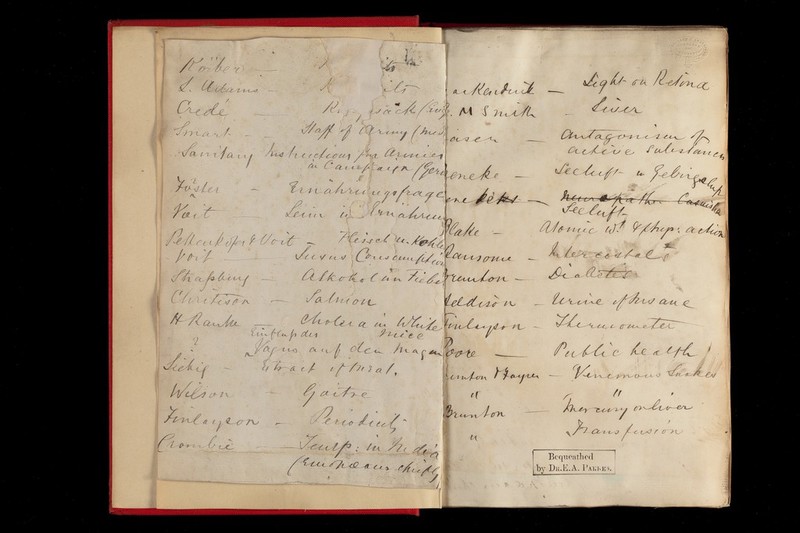 Körber —
S. Adams —
Credé —
Smart — Staff of Army (Med
Sanitary Instructions for Armies
in Campaign (Ger
Förster — Ernährungsfrage
Voit — Leim in Ernährung
Pettenkofer & Voit — Fleisch u. Kohle
Voit — Consumption
Straßburg — Alkohol in Fieber
Christison — Salmon
H Ranke — Cholera in White
mice
Einfluß der
? Vagus auf den Magen
Liebig — Extract of meat.
Wilson — Goitre
Finlayson — Periodicity
Crombie — Temp: in India
(Europeans chiefly
McKendrick — Light on Retina
M Smith — Liver
Antagonism of
active substances
Beneke — Seeluft u Gebirgsluft
Beneke —
Seeluft
Blake — Atomic Wt. & phys: action
Ransome — Intercostals
Brunton — Diabetes
Addison — Urine of Insane
Finlayson — Thermometer
Poore — Public health
Brunton & Fayrer — Venomous Snakes
" "
Brunton — Mercury on liver
" Transfusion
Bequeathed
by Dr. E.A. Parkes.